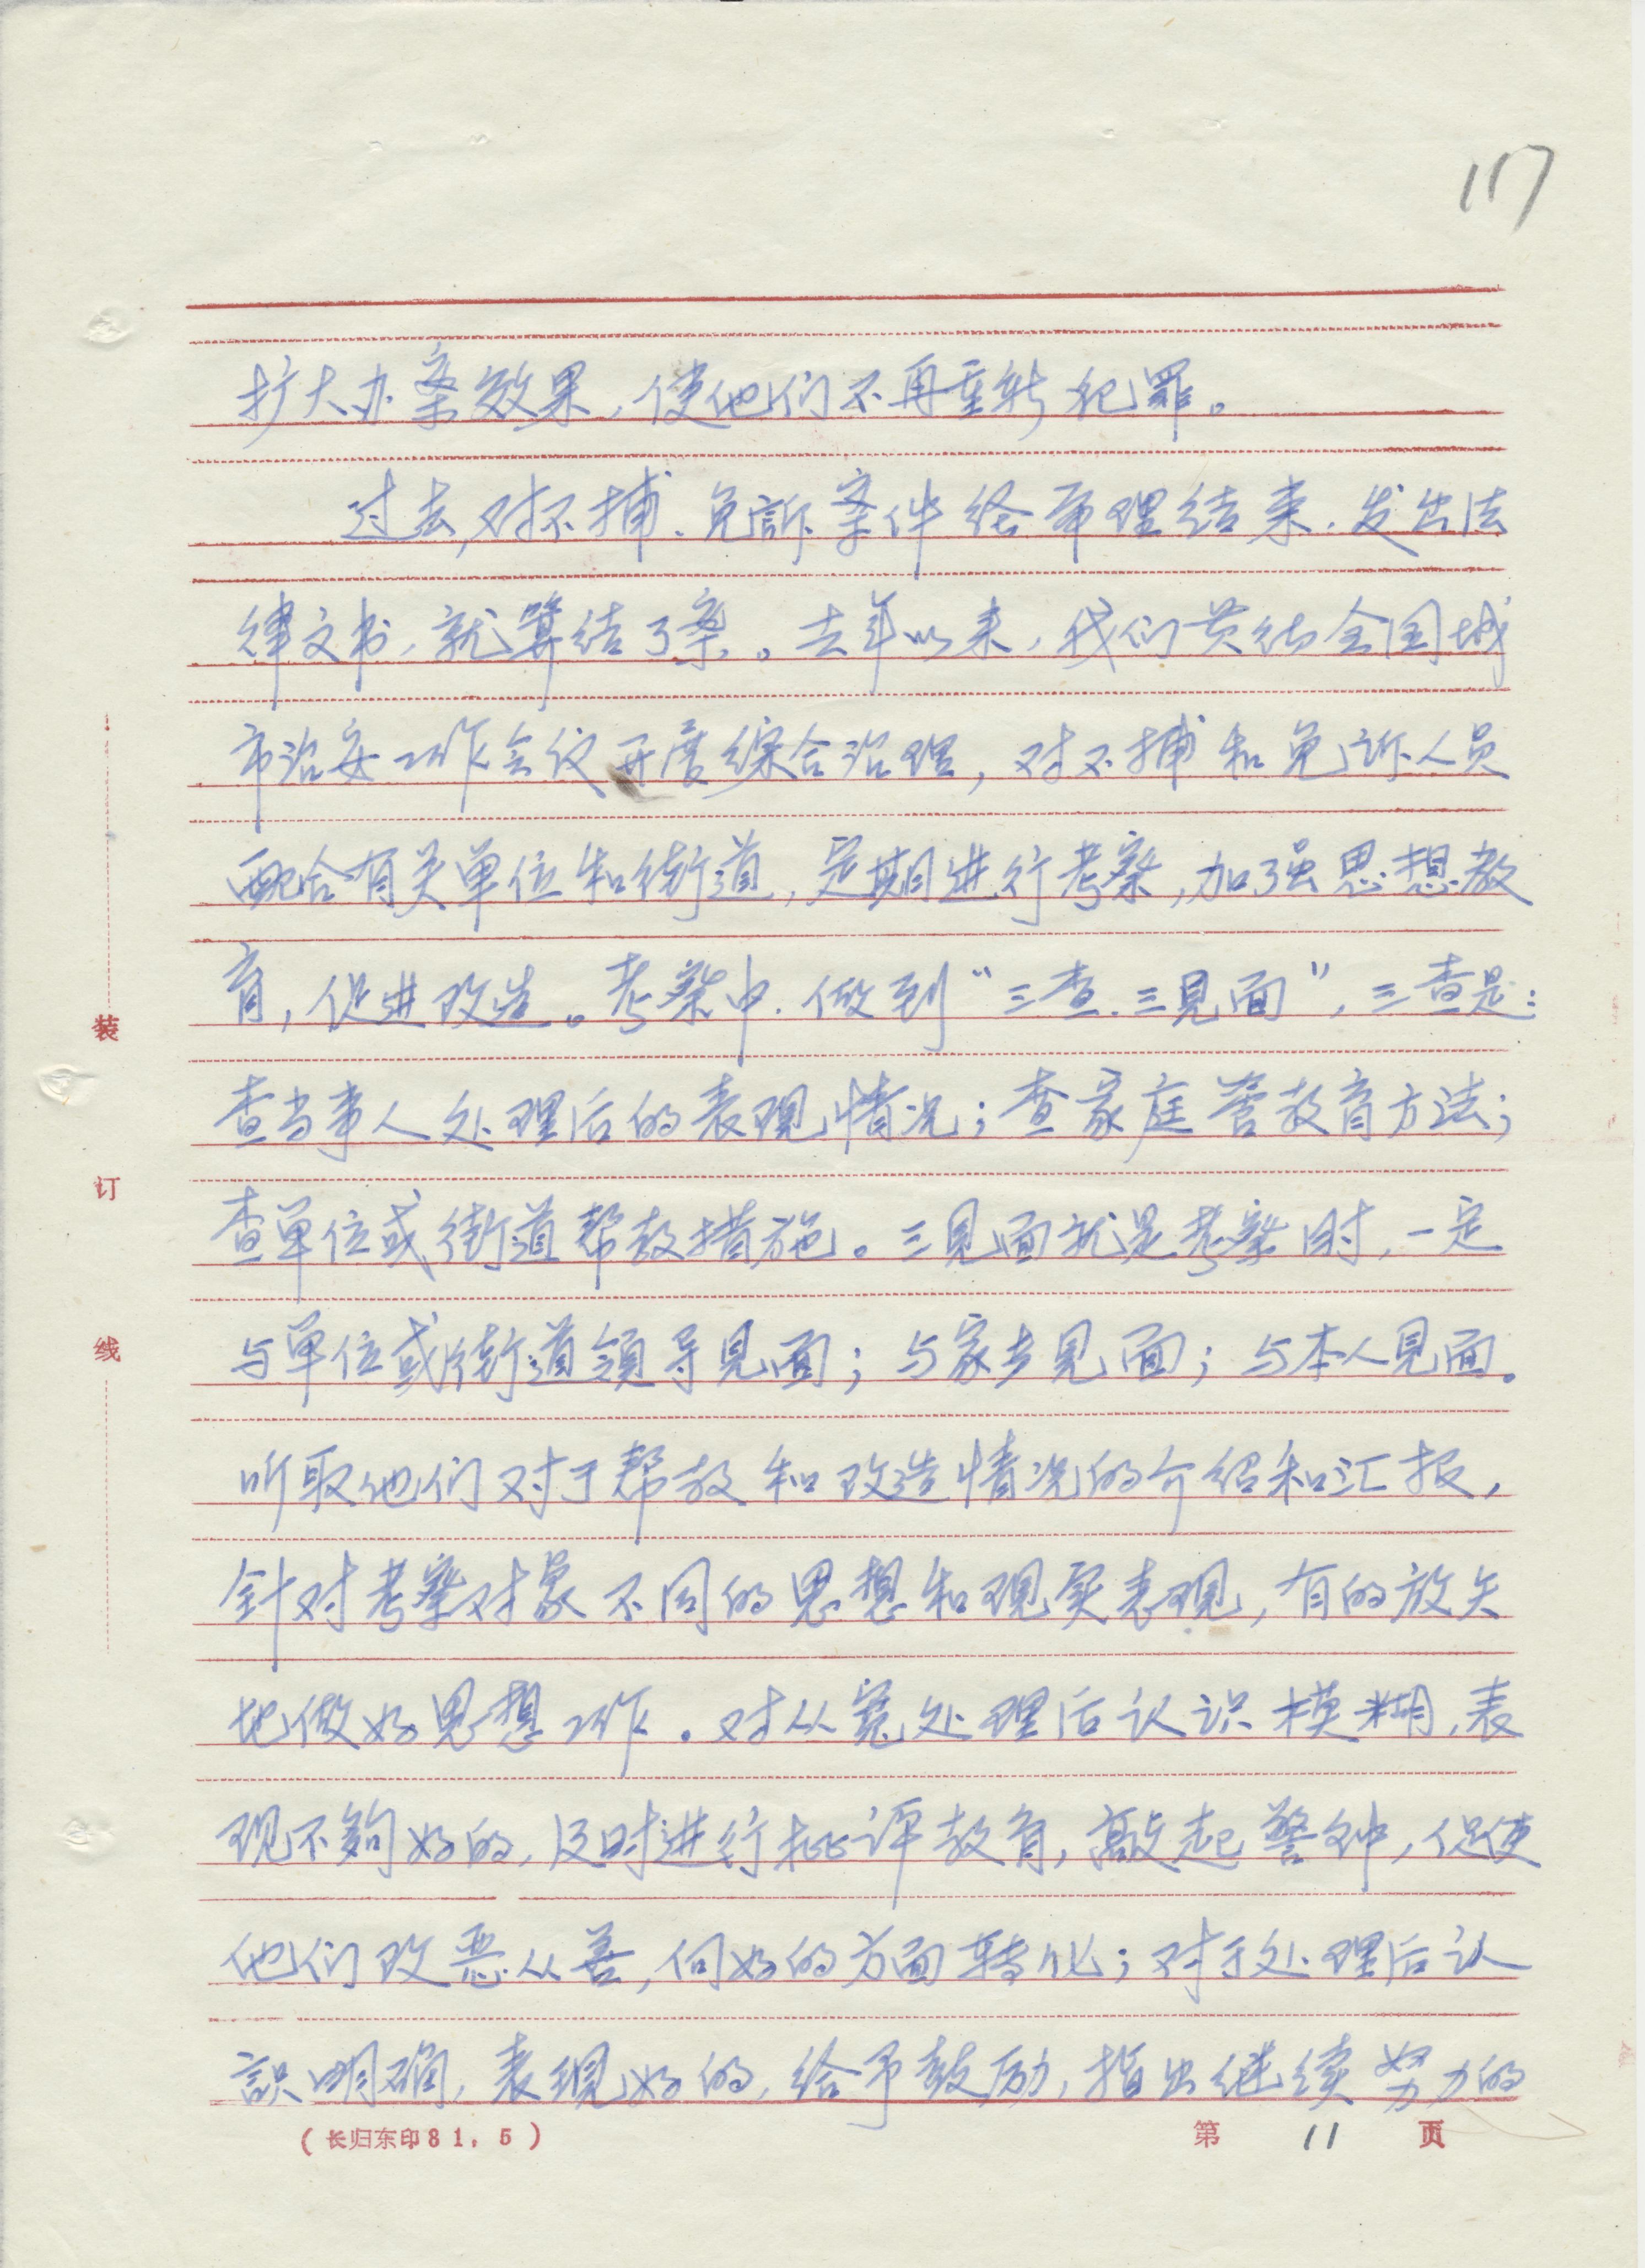 117
扩大办案效果，使他们不再重新犯罪。
过去，对不捕、免訴案件经审理结束，发出法
律文书，就算结了案。去年以来，我们贯彻全国城
市治安工作会议开展综合治理，对不捕和免诉人员
配合有关单位和街道，定期进行考察，加强思想教
育，促进改造。考察中，做到“三查、三見面”，三查是：
查当事人处理后的表现情况；查家庭管教育方法；
查单位或街道帮教措施。三見面就是考察时，一定
与单位或街道領导見面；与家长見面；与本人見面。
听取他们对于帮教和改造情况的介绍和汇报，
针对考察对象不同的思想和现实表现，有的放矢
地做好思想工作。对从宽处理后认识模糊，表
现不夠好的，及时进行批评教育，敲起警钟，促使
他们改恶从善，向好的方面转化；对于处理后认
識明确，表现好的，给予鼓励，指出继续努力的
装
订
线
(长归东印81.5)
第 11 页